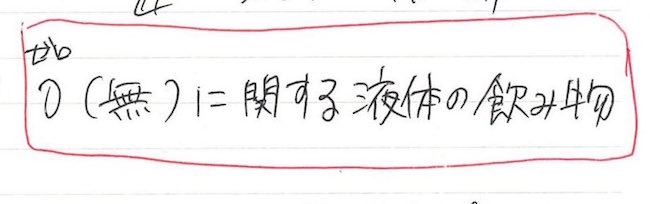 ゼロ
0(無)に関する液体の飲み物